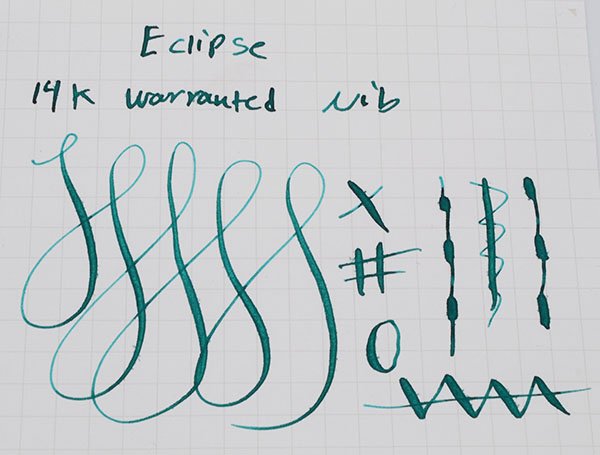 Eclipse
14K warranted Nib